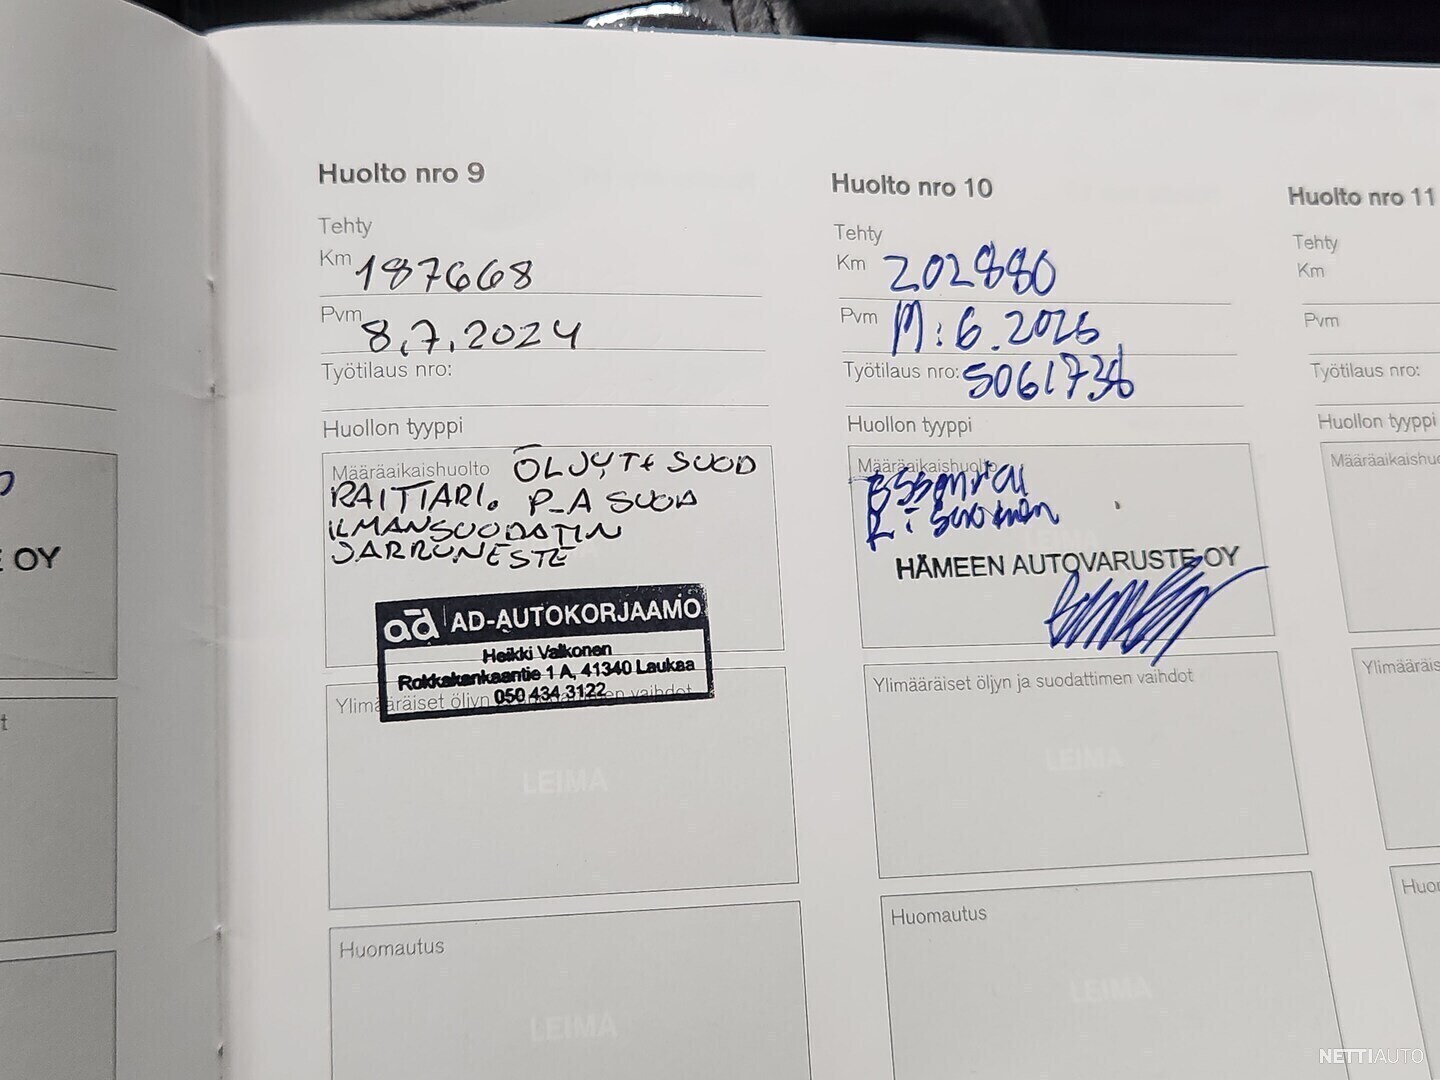 Huolto nro 9
Tehty
Km 187668
Pvm 8.7.2024
Työtilaus nro:
Huollon tyyppi
Määräaikaishuolto ÖLJYT+ SUOD
RAITTIARI. P-A SUOD
ILMANSUODATIN
JARRUNESTE
ad AD-AUTOKORJAAMO
Heikki Valkonen
Rokkakankaantie 1 A, 41340 Laukaa
050 434 3122
Ylimääräiset öljyn ja suodattimen vaihdot
LEIMA
Huomautus
LEIMA
Huolto nro 10
Tehty
Km 202880
Pvm 6.2025
Työtilaus nro: 5061738
Huollon tyyppi
Määräaikaishuolto
Essential
HÄMEEN AUTOVARUSTE OY
Ylimääräiset öljyn ja suodattimen vaihdot
LEIMA
Huomautus
LEIMA
Huolto nro 11
Tehty
Km
Pvm
Työtilaus nro:
Huollon tyyppi
Määräaikaishu
Ylimääräis
Huor
E OY
t
NETTIAUTO